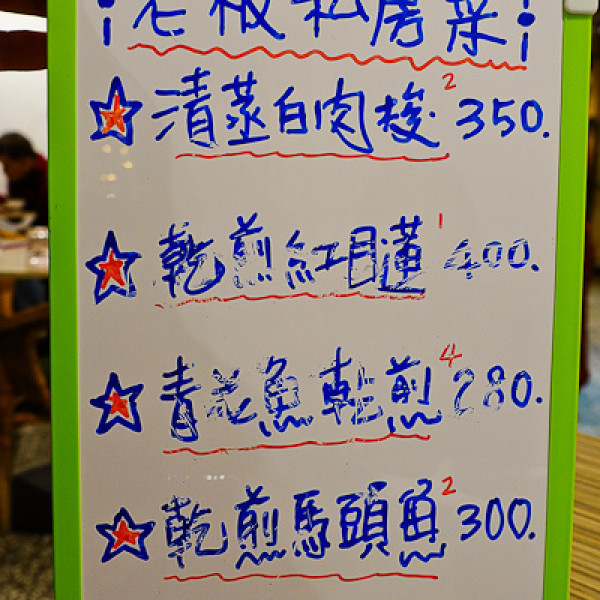 老板私房菜
清蒸白肉梭 2 350.
乾煎紅目蓮 1 400.
青花魚乾煎 4 280.
乾煎馬頭魚 2 300.